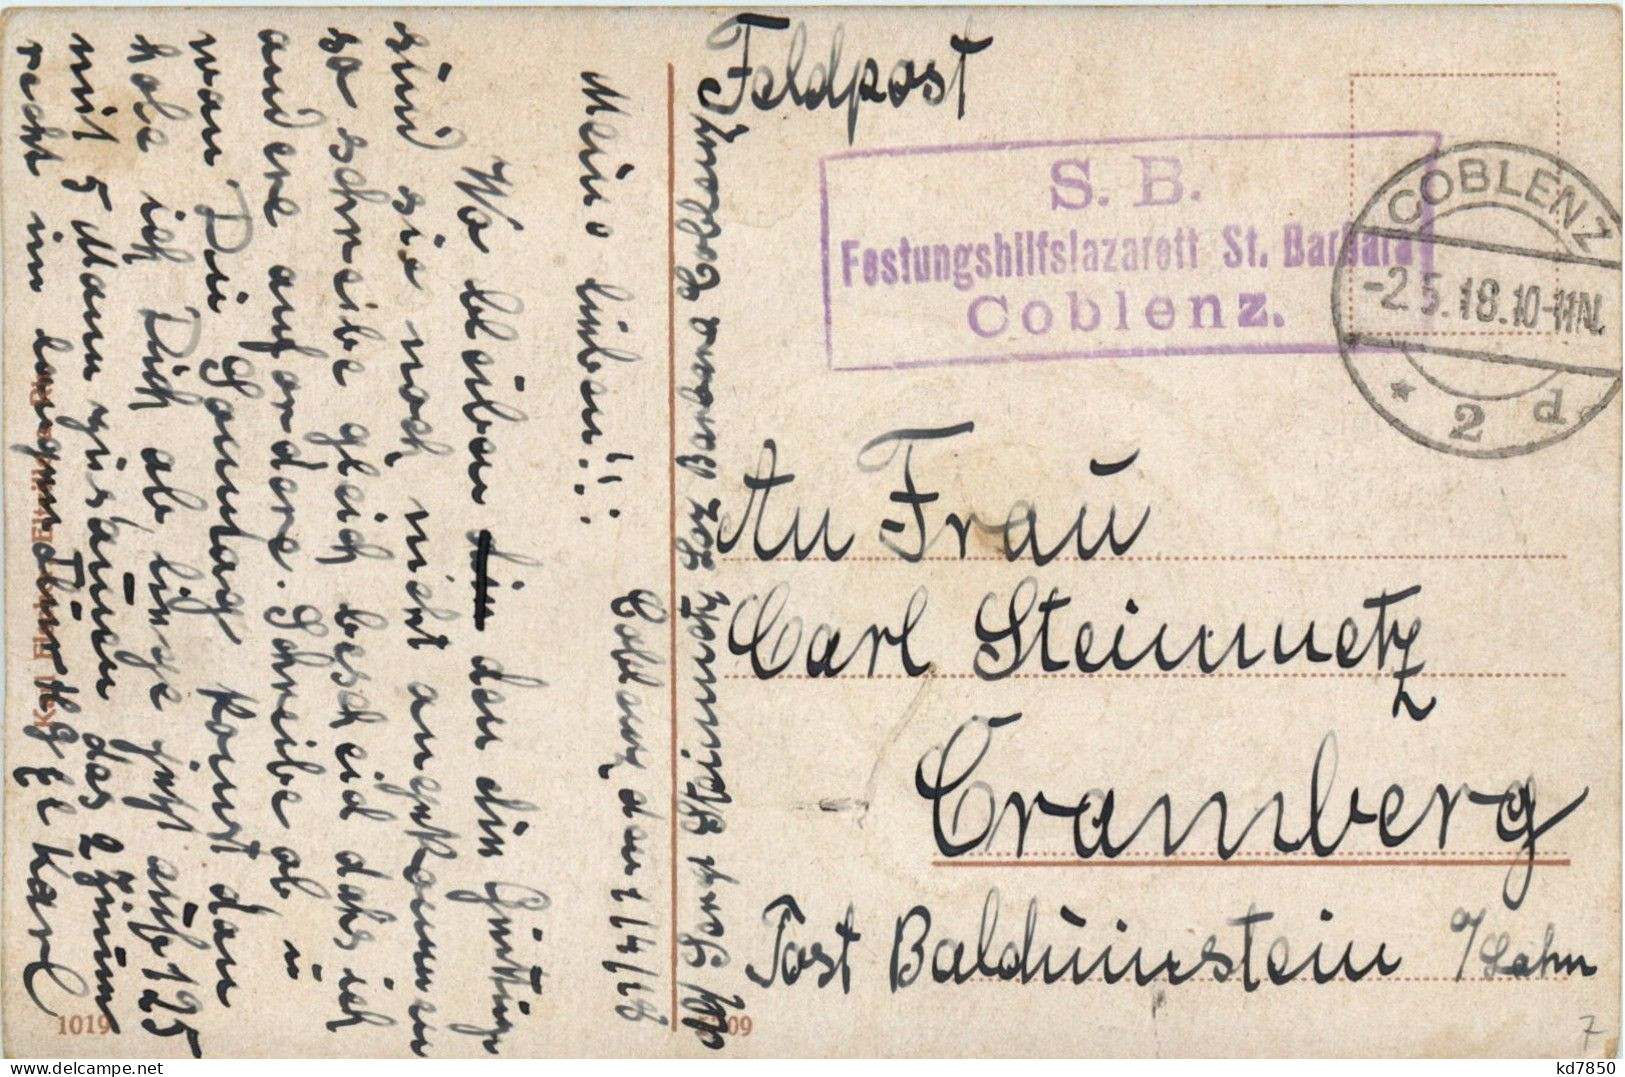 Feldpost
S. B.
Festungshilfslazarett St. Barbara
Coblenz.
COBLENZ
-2.5.18.10-11N.
* 2 d
An Frau
Carl Steinmetz
Cramberg
Post Balduinstein a/Lahn
Coblenz den 1/4/18
Meine lieben!!
Wo bleiben den die
sind sie noch nicht angekommen
so schreibe gleich bescheid dahs ich
andere anfordere. Schreibe ob u
wan Du Sonntag komst dan
hole ich Dich ab liege jetzt auf 125
mit 5 Mann zusamen das 2 Zimmer
recht im langen Karl
Steinmetz Laz Barbara Coblenz
1019
09
7
kd7850